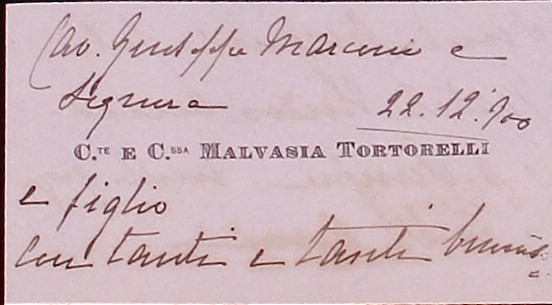 Cav. Giuseppe Marconi e
Signora 22.12.900
C.TE E C.SSA MALVASIA TORTORELLI
e figlio
con tanti e tanti